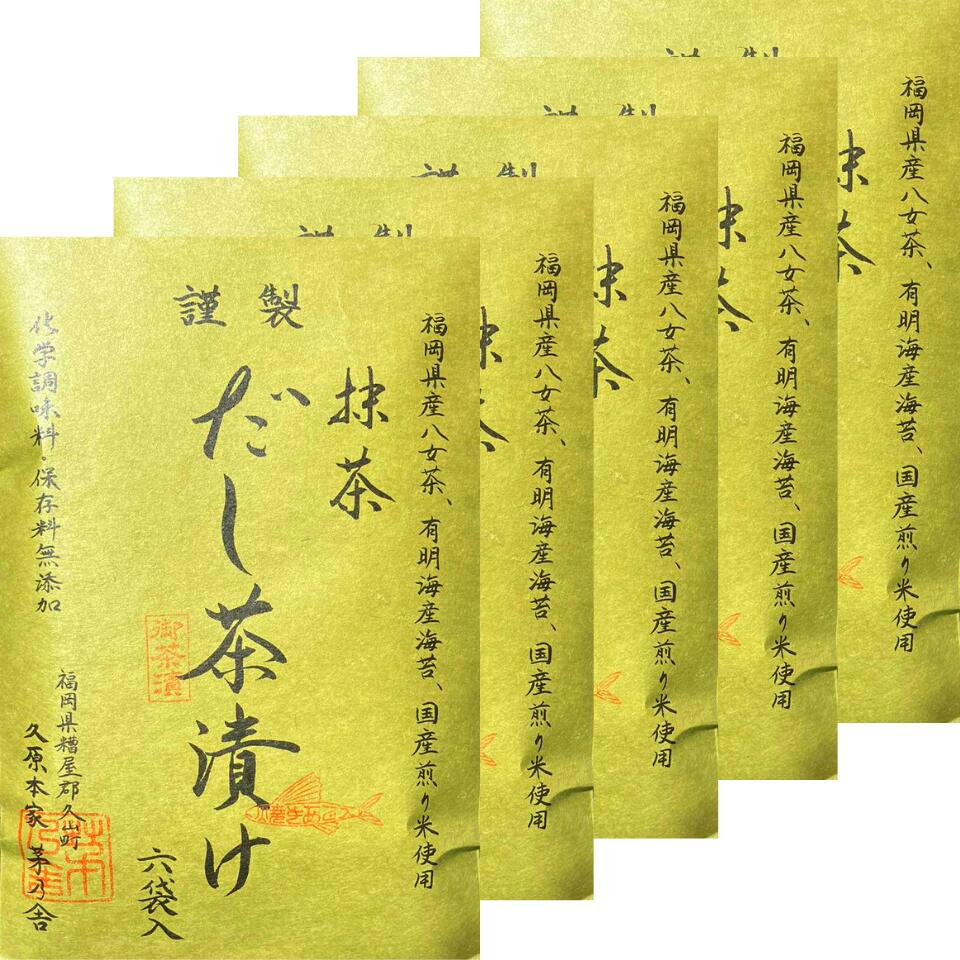 謹製
福岡県産八女茶、有明海産海苔、国産煎り米使用
抹茶
だし茶漬け
御茶漬
六袋入
福岡県糟屋郡久山町
久原本家 茅乃舎
化学調味料・保存料無添加
謹製
福岡県産八女茶、有明海産海苔、国産煎り米使用
抹茶
謹製
福岡県産八女茶、有明海産海苔、国産煎り米使用
抹茶
謹製
福岡県産八女茶、有明海産海苔、国産煎り米使用
抹茶
謹製
福岡県産八女茶、有明海産海苔、国産煎り米使用
抹茶